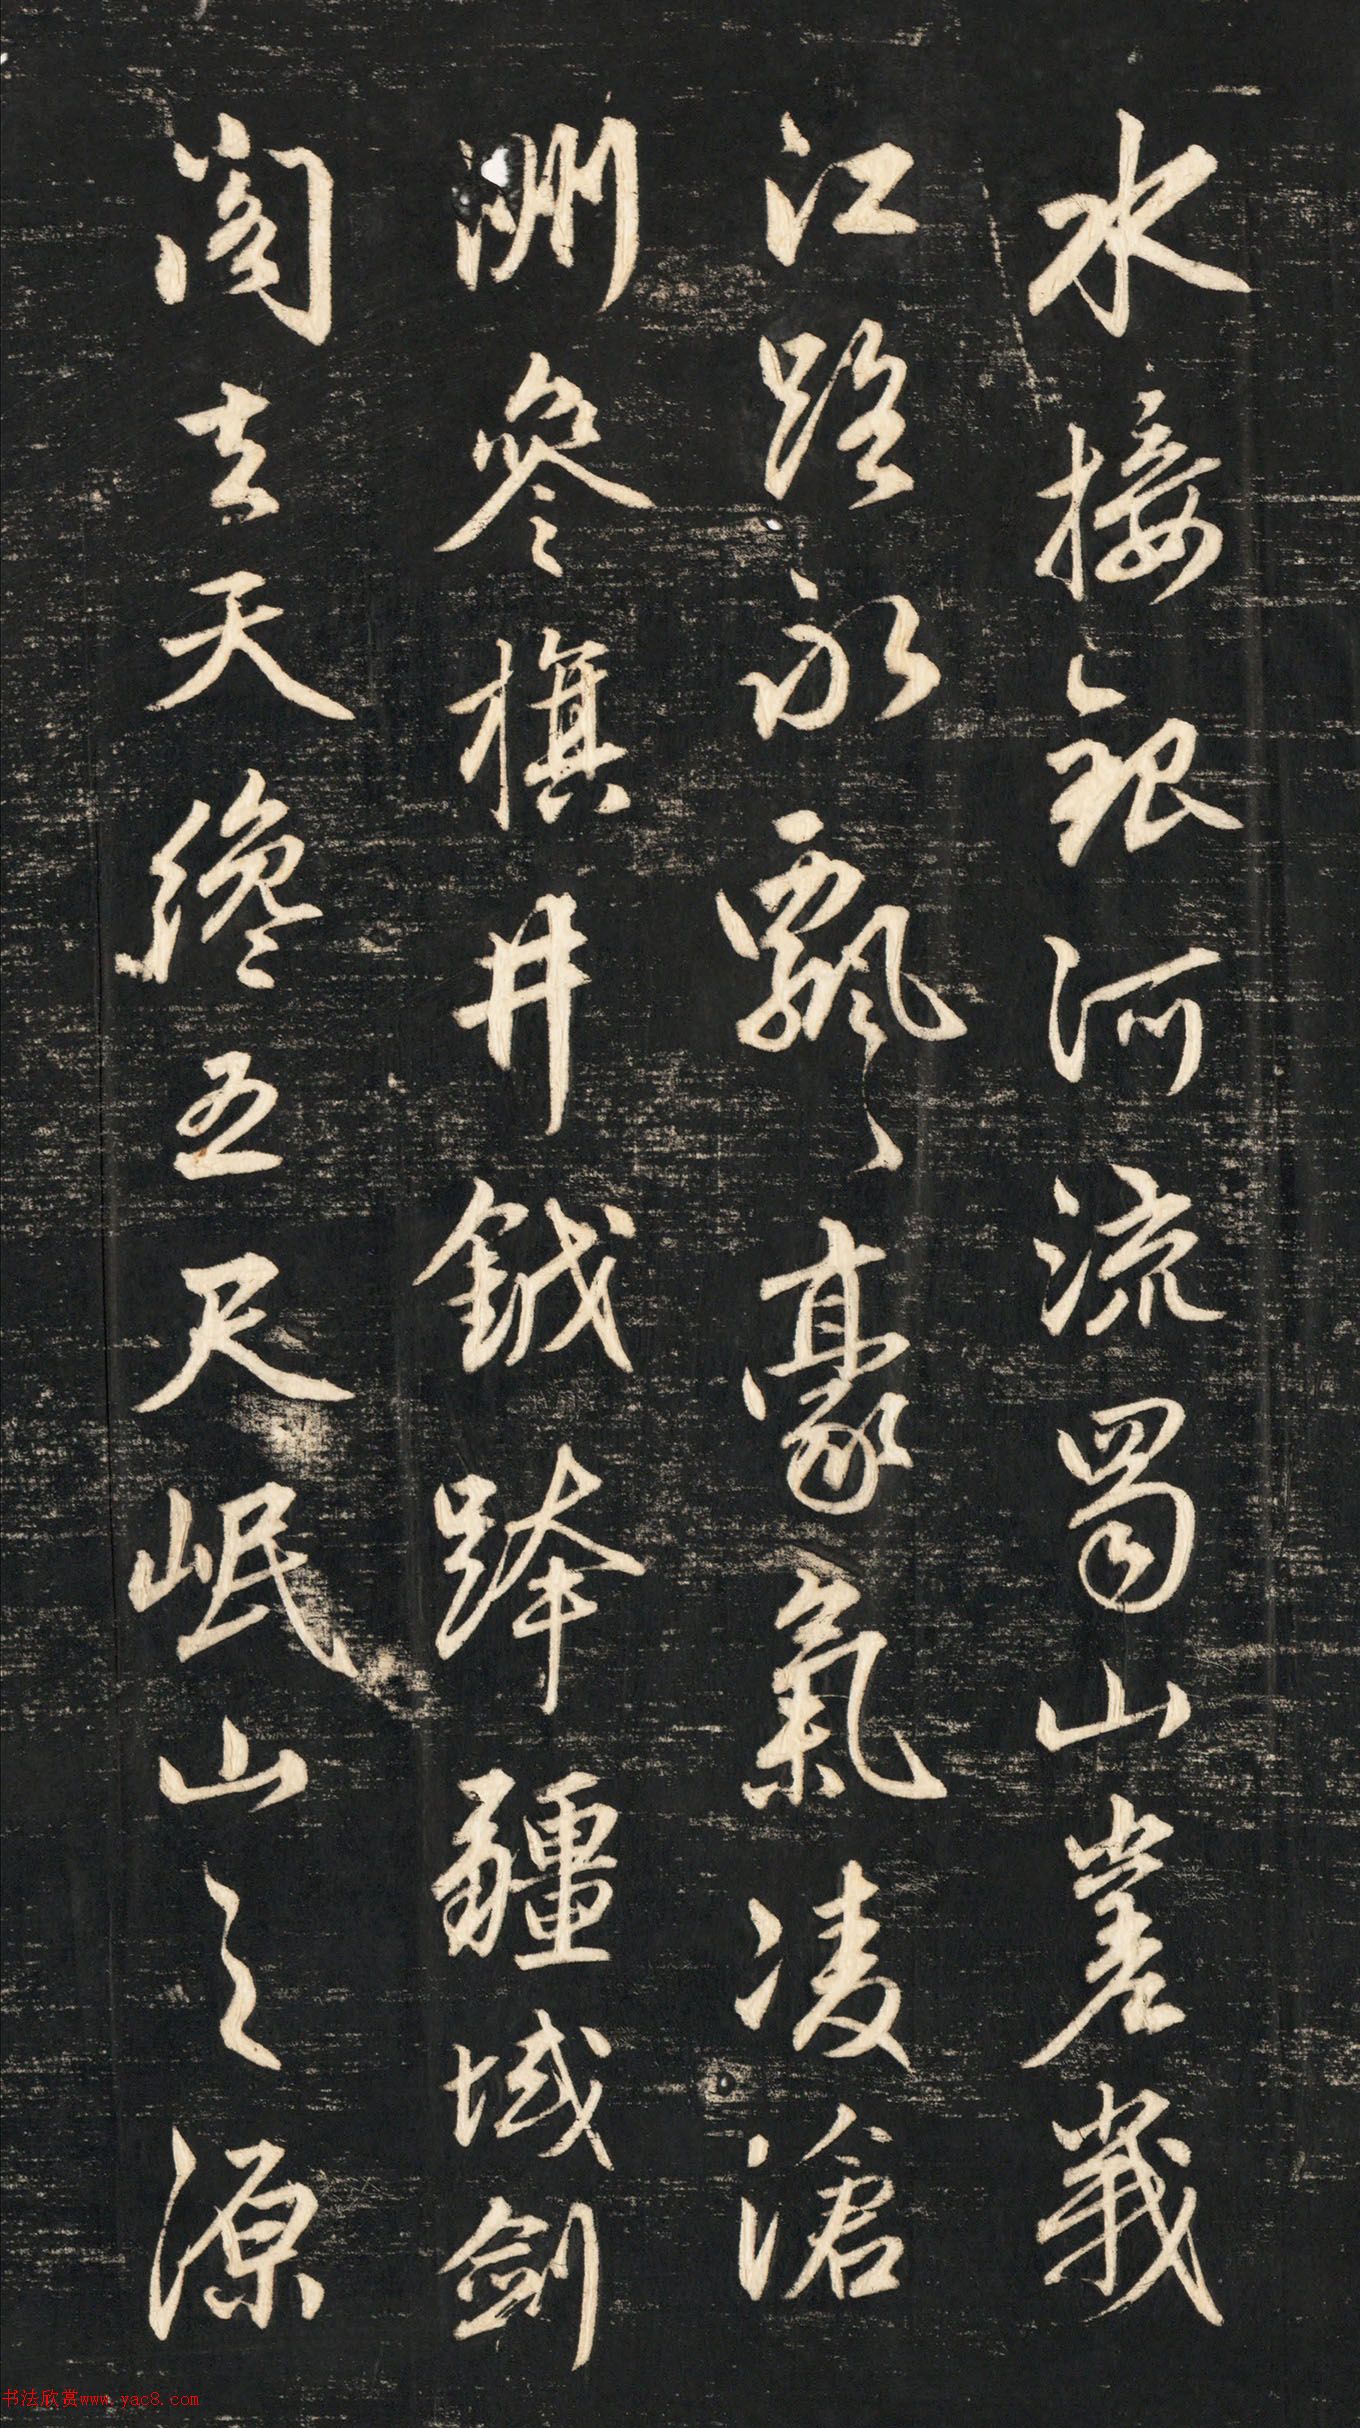 水接銀河流蜀山嵳峩
江路永飄飄豪氣凌滄
洲參旗井鉞跨疆域劍
閣去天纔五尺岷山之源
书法欣赏www.yac8.com